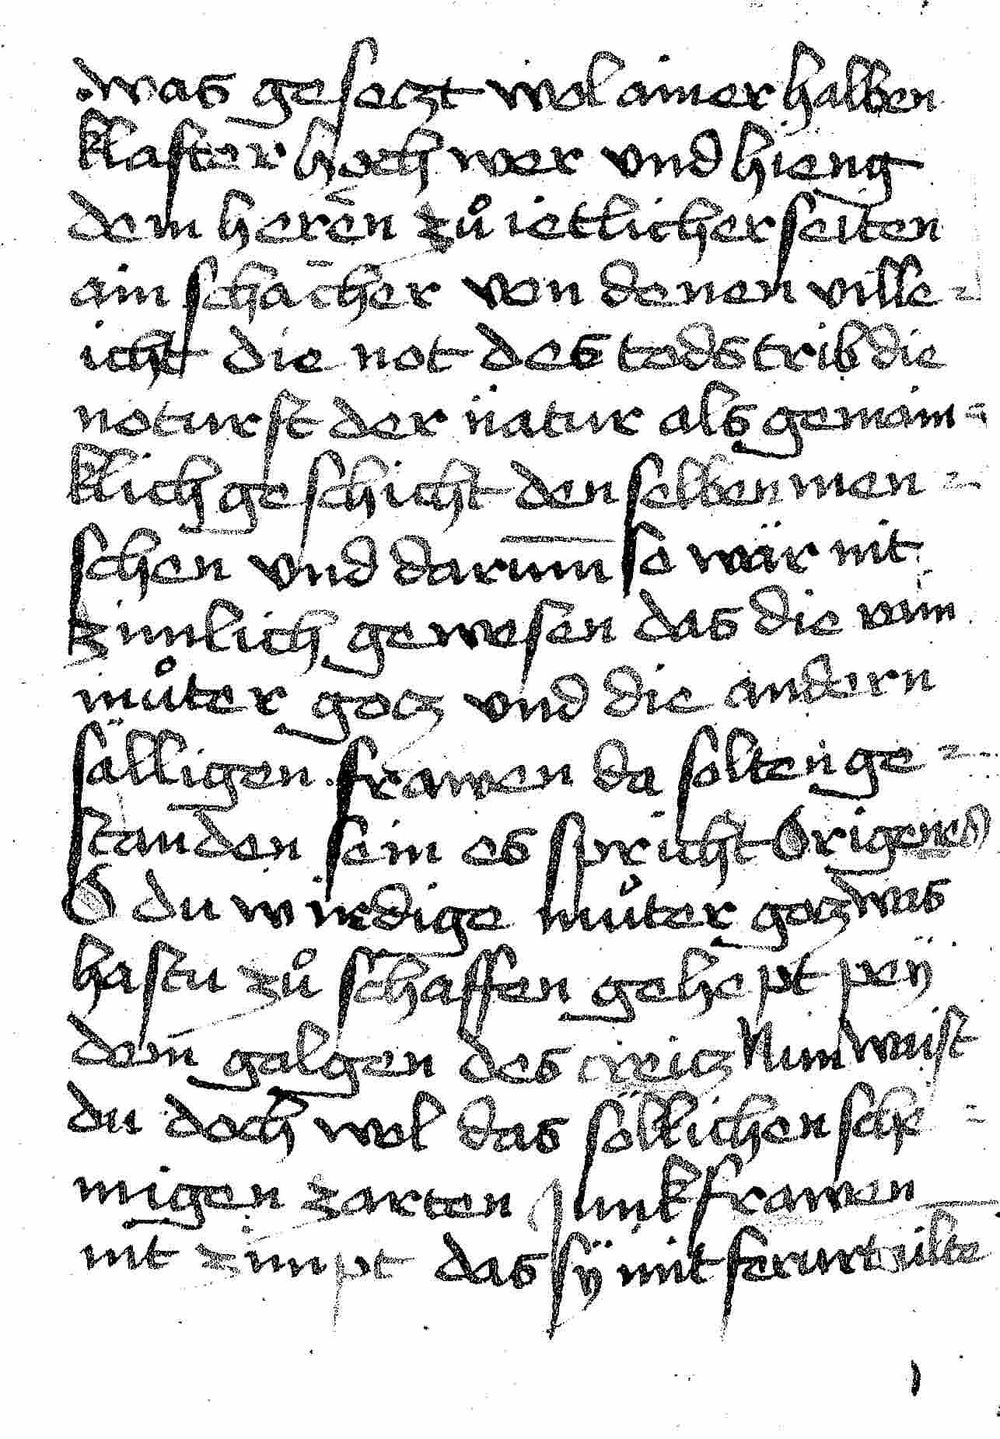 was geseczt wol ainer halben
klafter hoch wer vnd hieng
dem heren zů ietlicher seiten
ain schacher von denen ville=
icht die not des tods trib die
noturft der natur als gemain=
klich geschicht den selben men=
schen vnd darum so wär nit
zimlich gewesen das die rain
můter gocz vnd die andern
sälligen frawen da solten ge=
standen sein es spricht Origenes
O du wirdige můter gocz was
hastu zů schaffen gehept peÿ
dem galgen des creicz Nun waist
du doch wol das söllichen sche=
migen zarten Junkfrawen
nit zimpt das sÿ mit ferurtailte